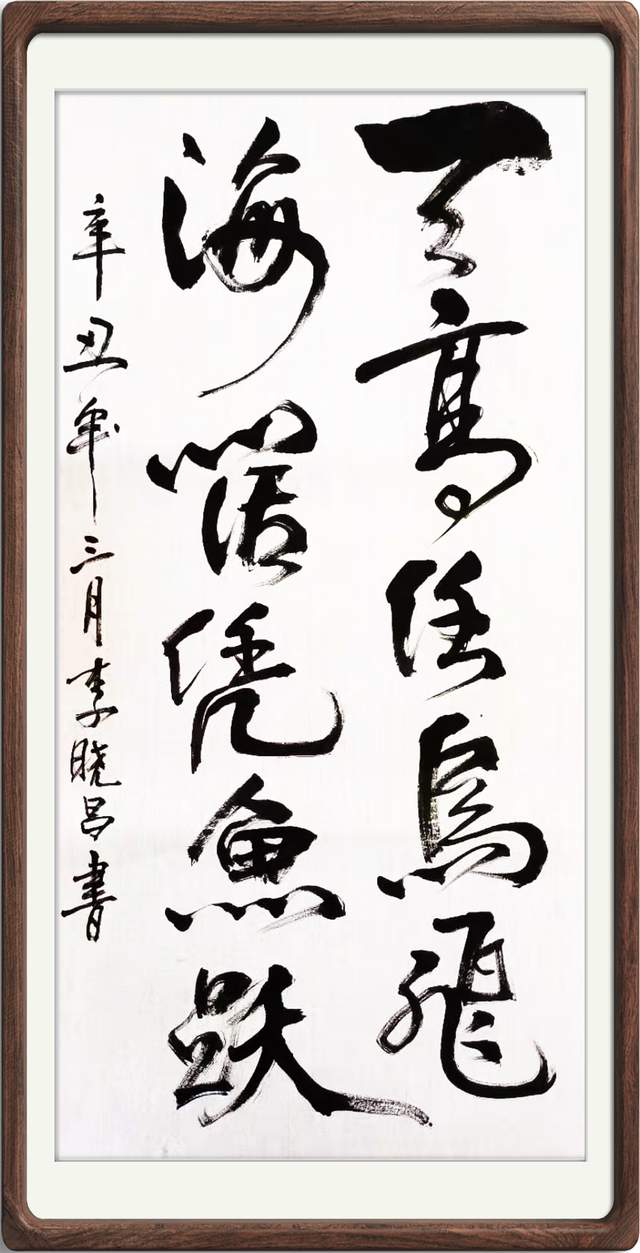 天高任鳥飛
海濶凭魚跃
辛丑年三月李晓昌書